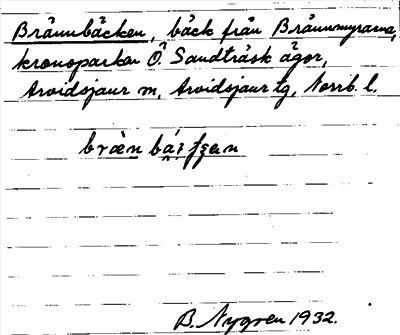 Brännbäcken, bäck från Brännmyrarna,
kronoparken Ö. Sandträsk ägor,
Arvidsjaur m, Arvidsjaur tg, Norrb. l.
B. Nygren 1932.